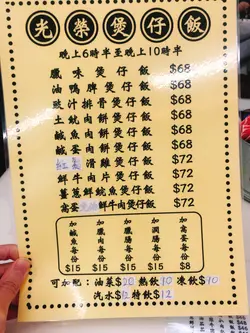 光榮煲仔飯
晚上6時半至晚上10時半
臘味煲仔飯 $68
油鴨脾煲仔飯 $68
豉汁排骨煲仔飯 $68
土魷肉餅煲仔飯 $68
鹹魚肉餅煲仔飯 $68
鹹蛋肉餅煲仔飯 $68
滑雞煲仔飯 $72
鮮牛肉片煲仔飯 $72
薑蔥鮮鯇魚煲仔飯 $72
窩蛋 鮮牛肉煲仔飯 $72
加鹹魚每份 $15
加臘腸每份 $15
加臘肉每份 $15
加潤腸每份 $15
加窩蛋每份 $8
可加配：油菜$20 熱飲10 凍飲$10
汽水$12 特飲$12